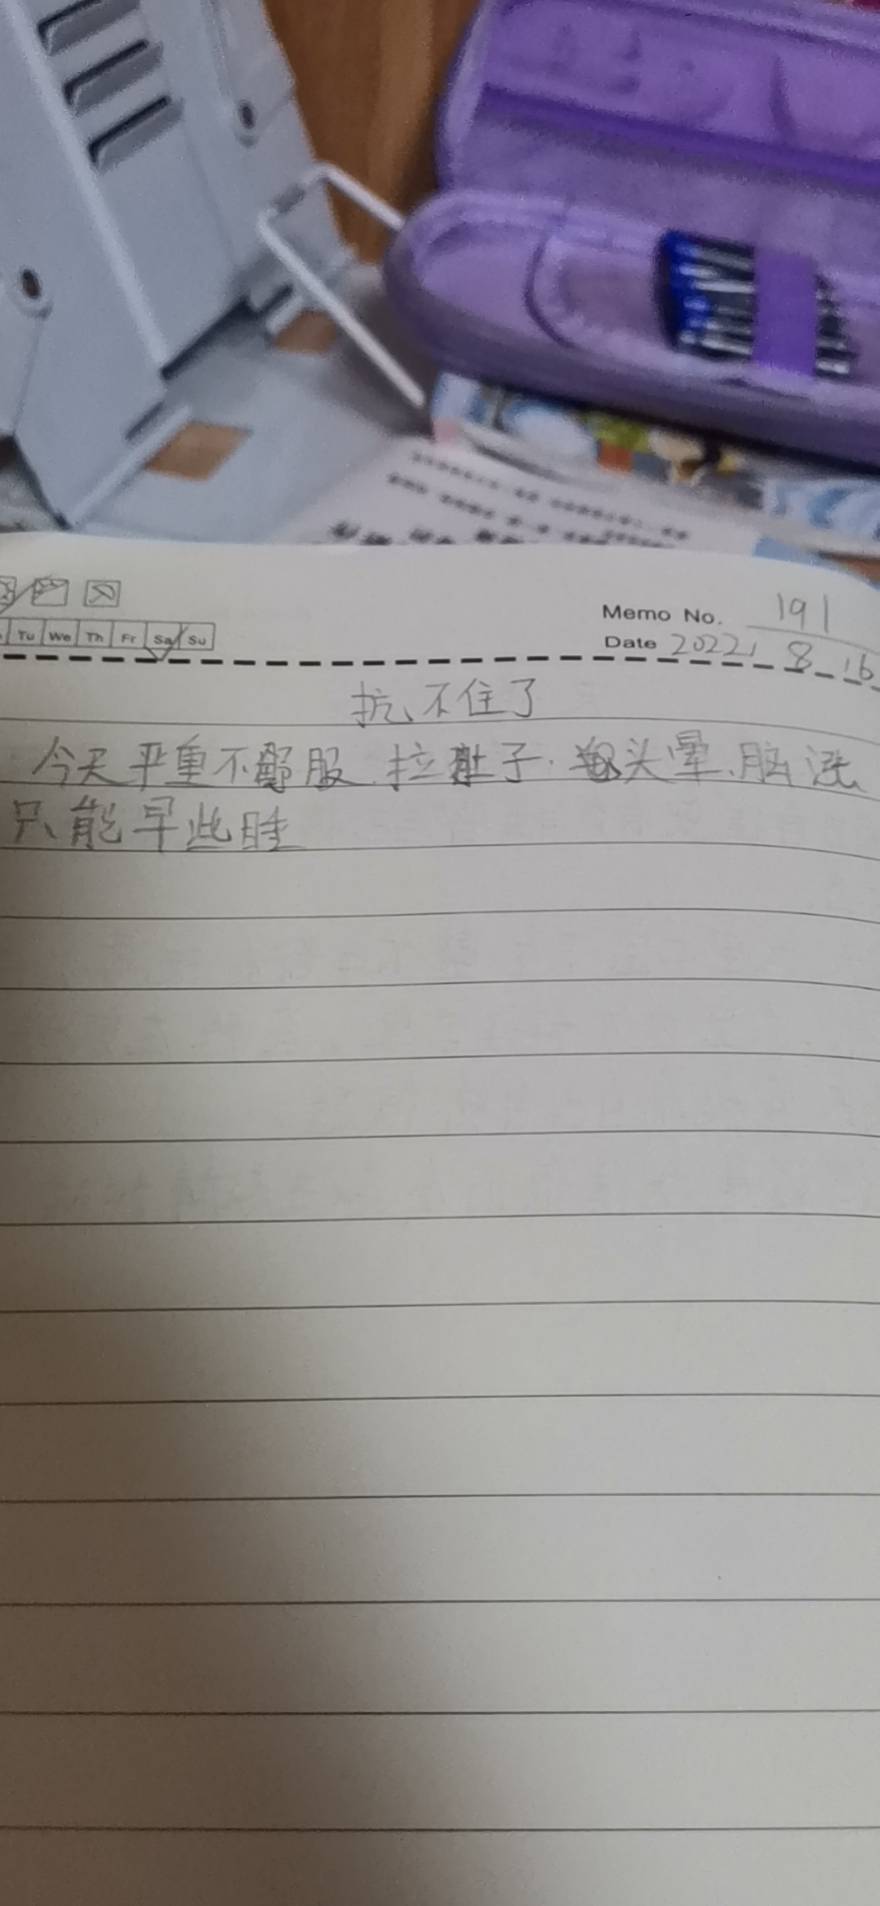 Memo No. 191
Tu We Th Fr Sa Su
Date 2022, 8 16
抗不住了
今天严重不舒服.拉肚子.头晕、脑涨
只能早些睡